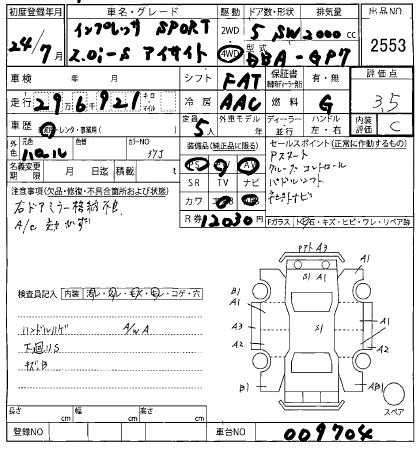 初度登録年月 車名・グレード 駆動 ドア数・形状 排気量 出品NO
24/7月 インプレッサ SPORT 2WD 5 SW 2000 cc 2553
2.0i-S アイサイト 4WD 型式 DBA-GP7
車検 年 月 シフト FAT 保証書 有・無 評価点
走行 29万6千921 キロ マイル 冷房 AAC 燃料 G 3.5
車歴 レンタ・事業用( ) 定員 5人 外車モデル 年 ディーラー 並行 ハンドル 左・右 内装評価 C
外色 元色 パール 色替 カラーNO 37J 装備品(純正品に限る) セールスポイント(正常に作動するもの)
名義変更期限 月 日迄 積載 t PS AW
SR TV ナビ
カワ
R券 12030円
Pスタート
クルーズコントロール
パドルシフト
ナビ
注意事項(欠品・修復・不具合箇所および状態)
右ドアミラー格納不良
A/C
Fガラス トビ石・キズ・ヒビ・ワレ・リペア跡
検査員記入 内装 コゲ・穴
ハンドルハゲ A/W A
下廻りS
キズ、B
フロア A3
B1 A1
B1 A1
A1 A1
A3 S1 A2
A2
B1 AB1
スペア
長さ cm 幅 cm 高さ cm
登録NO 車台NO 009704